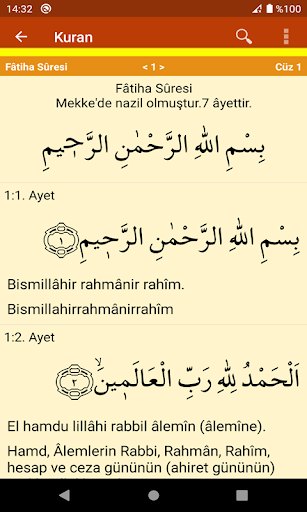 14:32 %100
Kuran
Fâtiha Sûresi < 1 > Cüz 1
Fâtiha Sûresi
Mekke'de nazil olmuştur.7 âyettir.
بِسْمِ اللهِ الرَّحْمٰنِ الرَّحٖيمِ
1:1. Ayet
بِسْمِ اللهِ الرَّحْمٰنِ الرَّحٖيمِ ﴿١﴾
Bismillâhir rahmânir rahîm.
Bismillahirrahmânirrahîm
1:2. Ayet
اَلْحَمْدُ لِلهِ رَبِّ الْعَالَمٖينَۙ ﴿٢﴾
El hamdu lillâhi rabbil âlemîn (âlemîne).
Hamd, Âlemlerin Rabbi, Rahmân, Rahîm,
hesap ve ceza gününün (ahiret gününün)